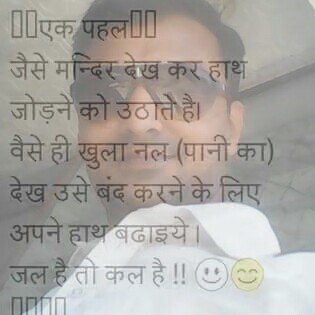 एक पहल
जैसे मन्दिर देख कर हाथ
जोड़ने को उठाते है।
वैसे ही खुला नल (पानी का)
देख उसे बंद करने के लिए
अपने हाथ बढाइये ।
जल है तो कल है !! 😃😊